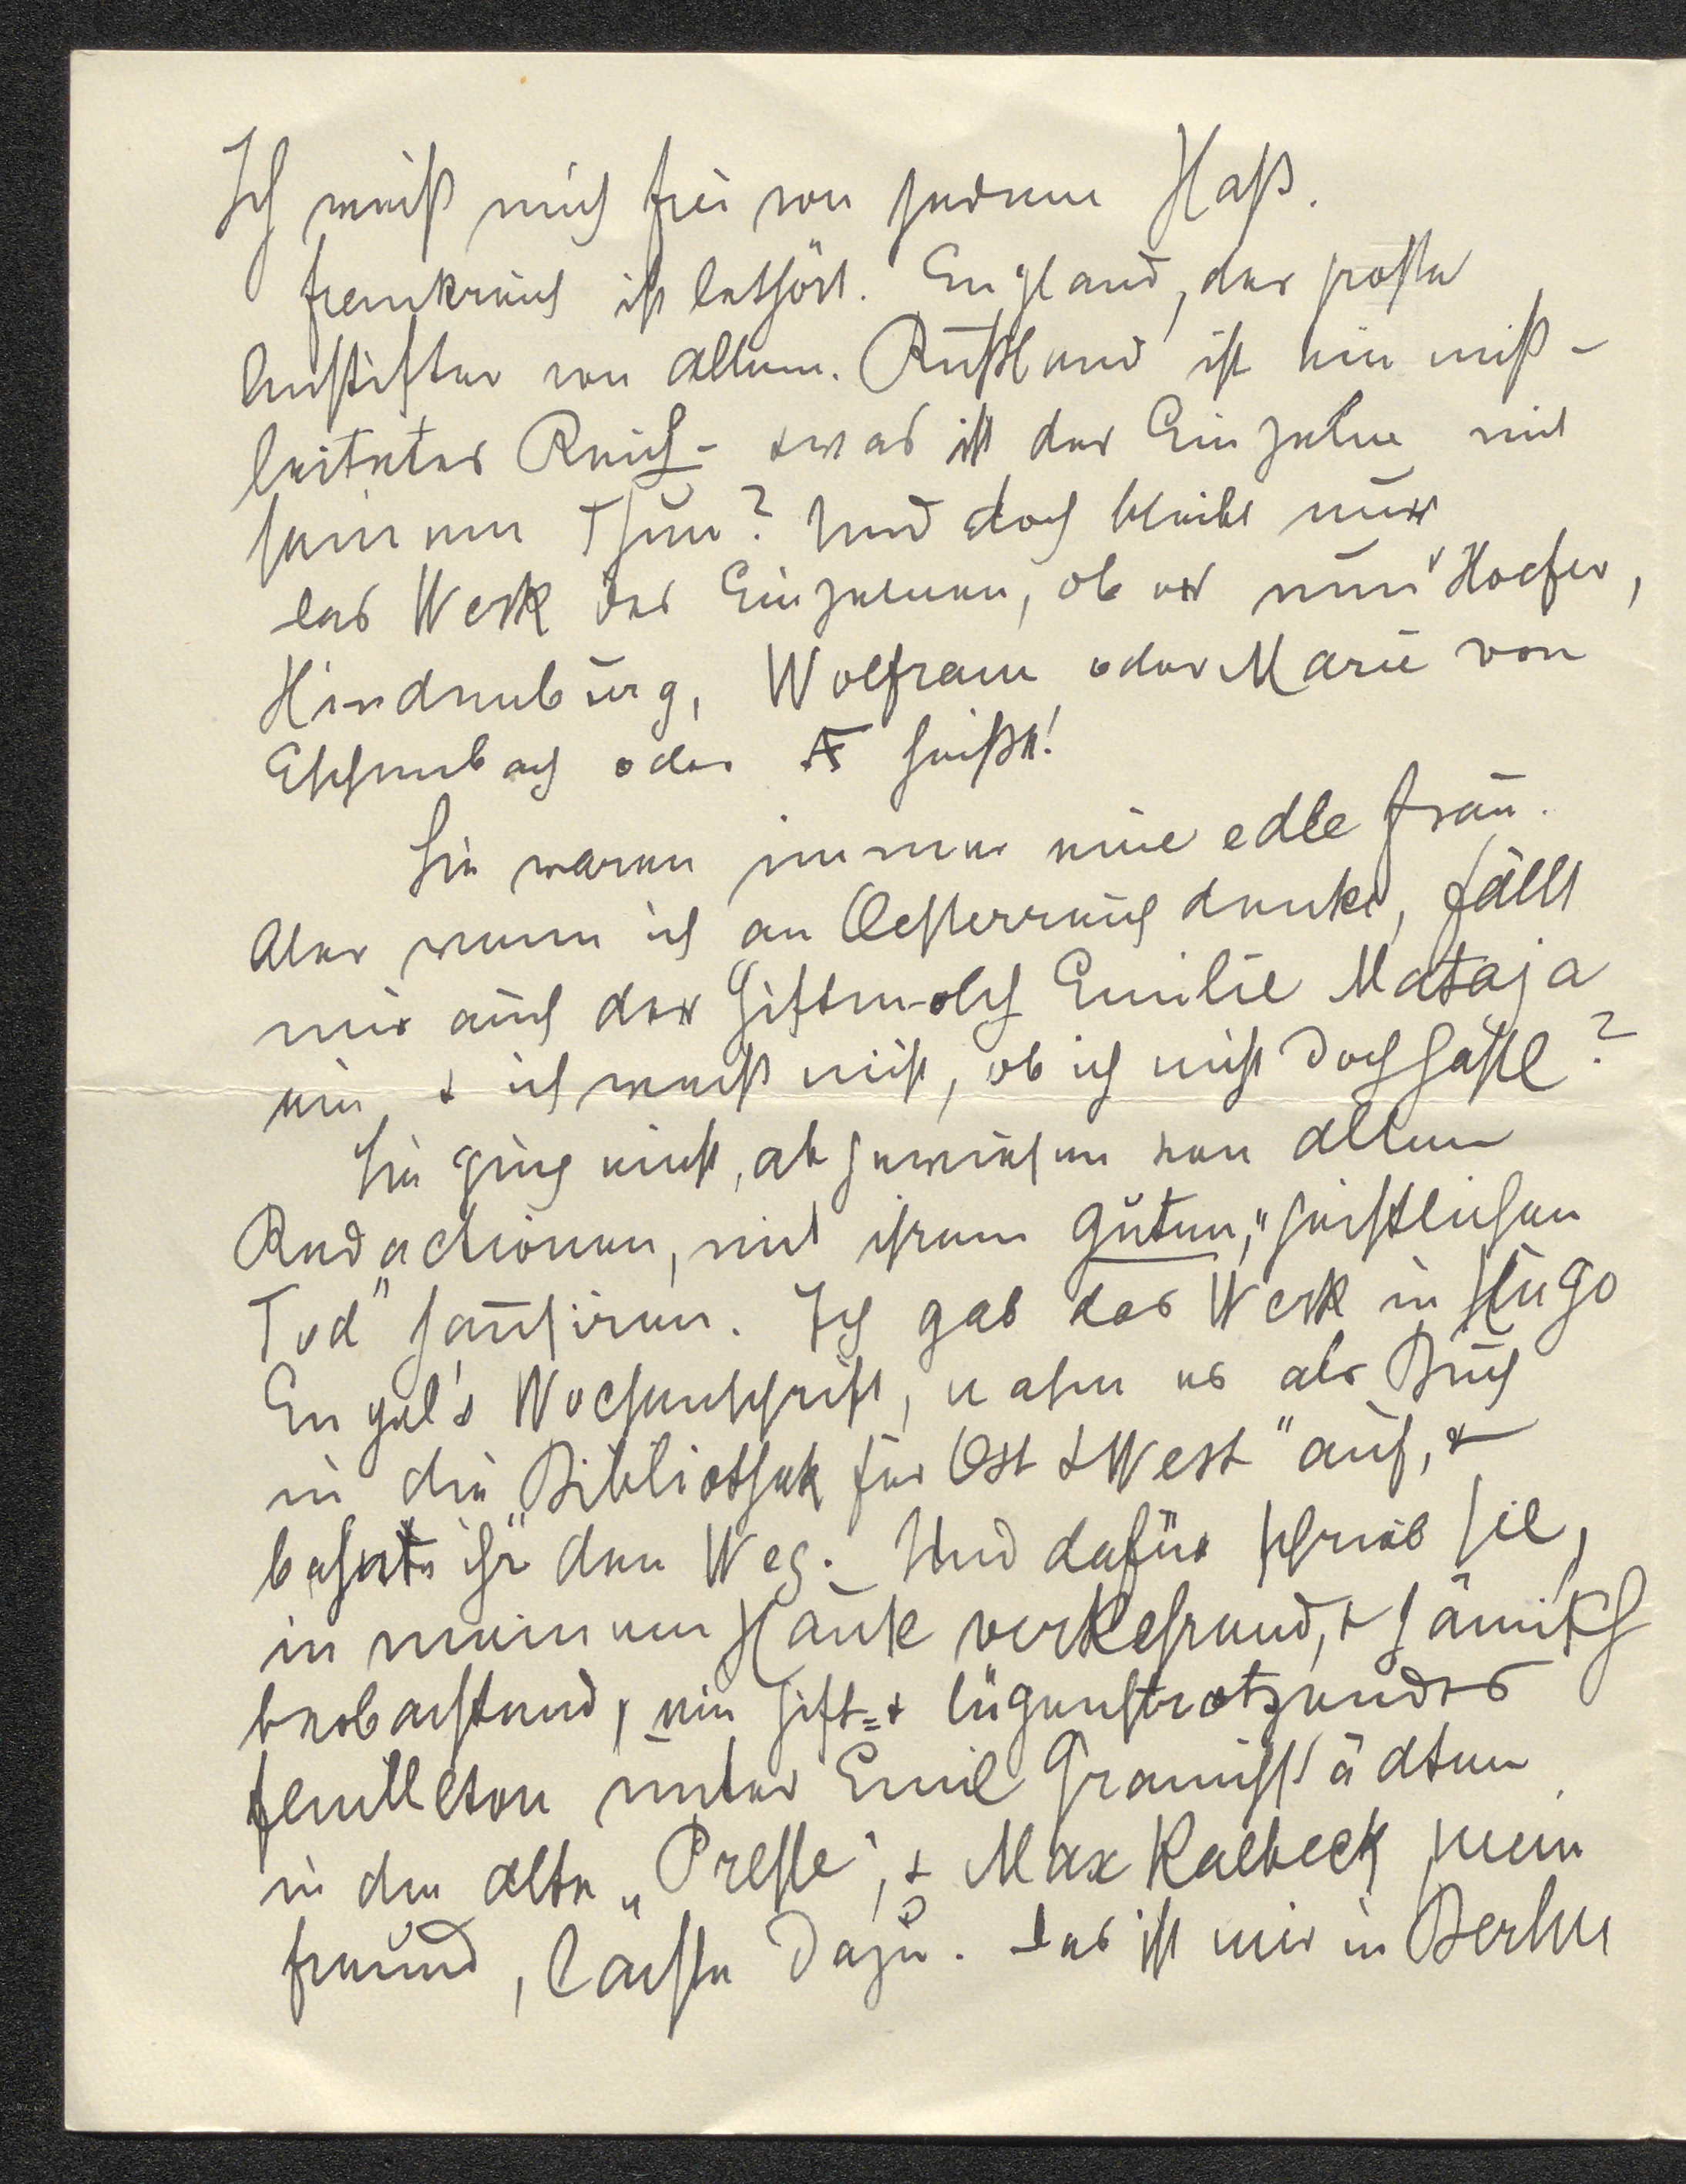 Ich weiß mich frei von jedem Haß.
Frankreich ist bethört. England, der große
Anstifter von allem. Rußland ist ein miß-
leitetes Reich - & was ist der Einzelne mit
seinem Thun? Und doch bleibt nur
das Werk des Einzelnen, ob er nun Hoefer,
Hindenburg, Wolfram oder Marie von
Eschenbach oder heißt!
Sie waren immer eine edle Frau.
Aber wenn ich an Oesterreich denke, fällt
mir auch der Giftmolch Emilie Mataja
ein & ich weiß nicht, ob ich nicht doch haße?
Sie ging einst, abgewiesen von allen
Redactionen, mit ihrem guten, "geistlichen
Tod" hausiren. Ich gab das Werk in Hugo
Engel's Wochenschrift, nahm es als Buch
in die "Bibliothek für Ost & West" auf, &
bahnte ihr den Weg. Und dafür schrieb sie,
in meinem Hause verkehrend, & hämisch
beobachtend, ein gift= & lügenstrotzendes
Feuilleton unter Emil Granichstädten
in der alten „Presse", & Max Kalbeck mein
Freund, lachte dazu. Das ist mir in Berlin